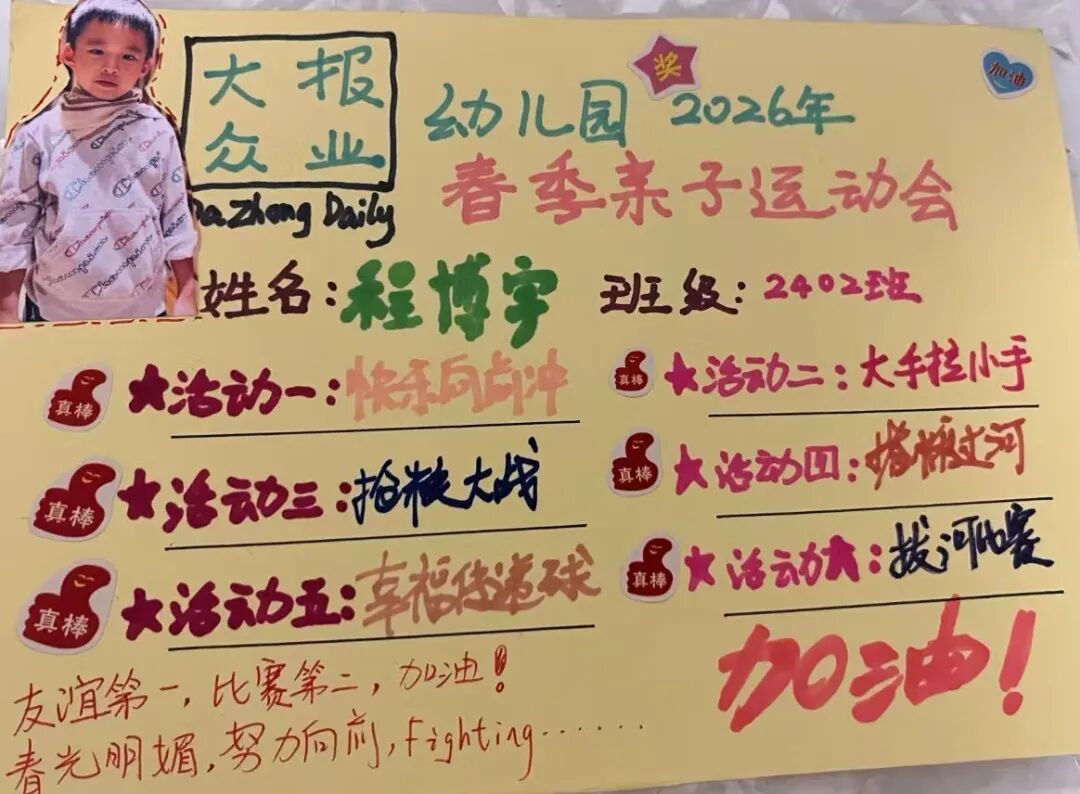 大报
众业
DaZhong Daily
幼儿园 2026年
春季亲子运动会
奖
加油
姓名：程博宇 班级：2402班
真棒 ★活动一：快乐向前冲
真棒 ★活动二：大手拉小手
真棒 ★活动三：抢粮大战
真棒 ★活动四：搭桥过河
真棒 ★活动五：幸福传递球
真棒 ★活动六：拔河比赛
加油！
友谊第一，比赛第二，加油！
春光明媚，努力向前，Fighting······